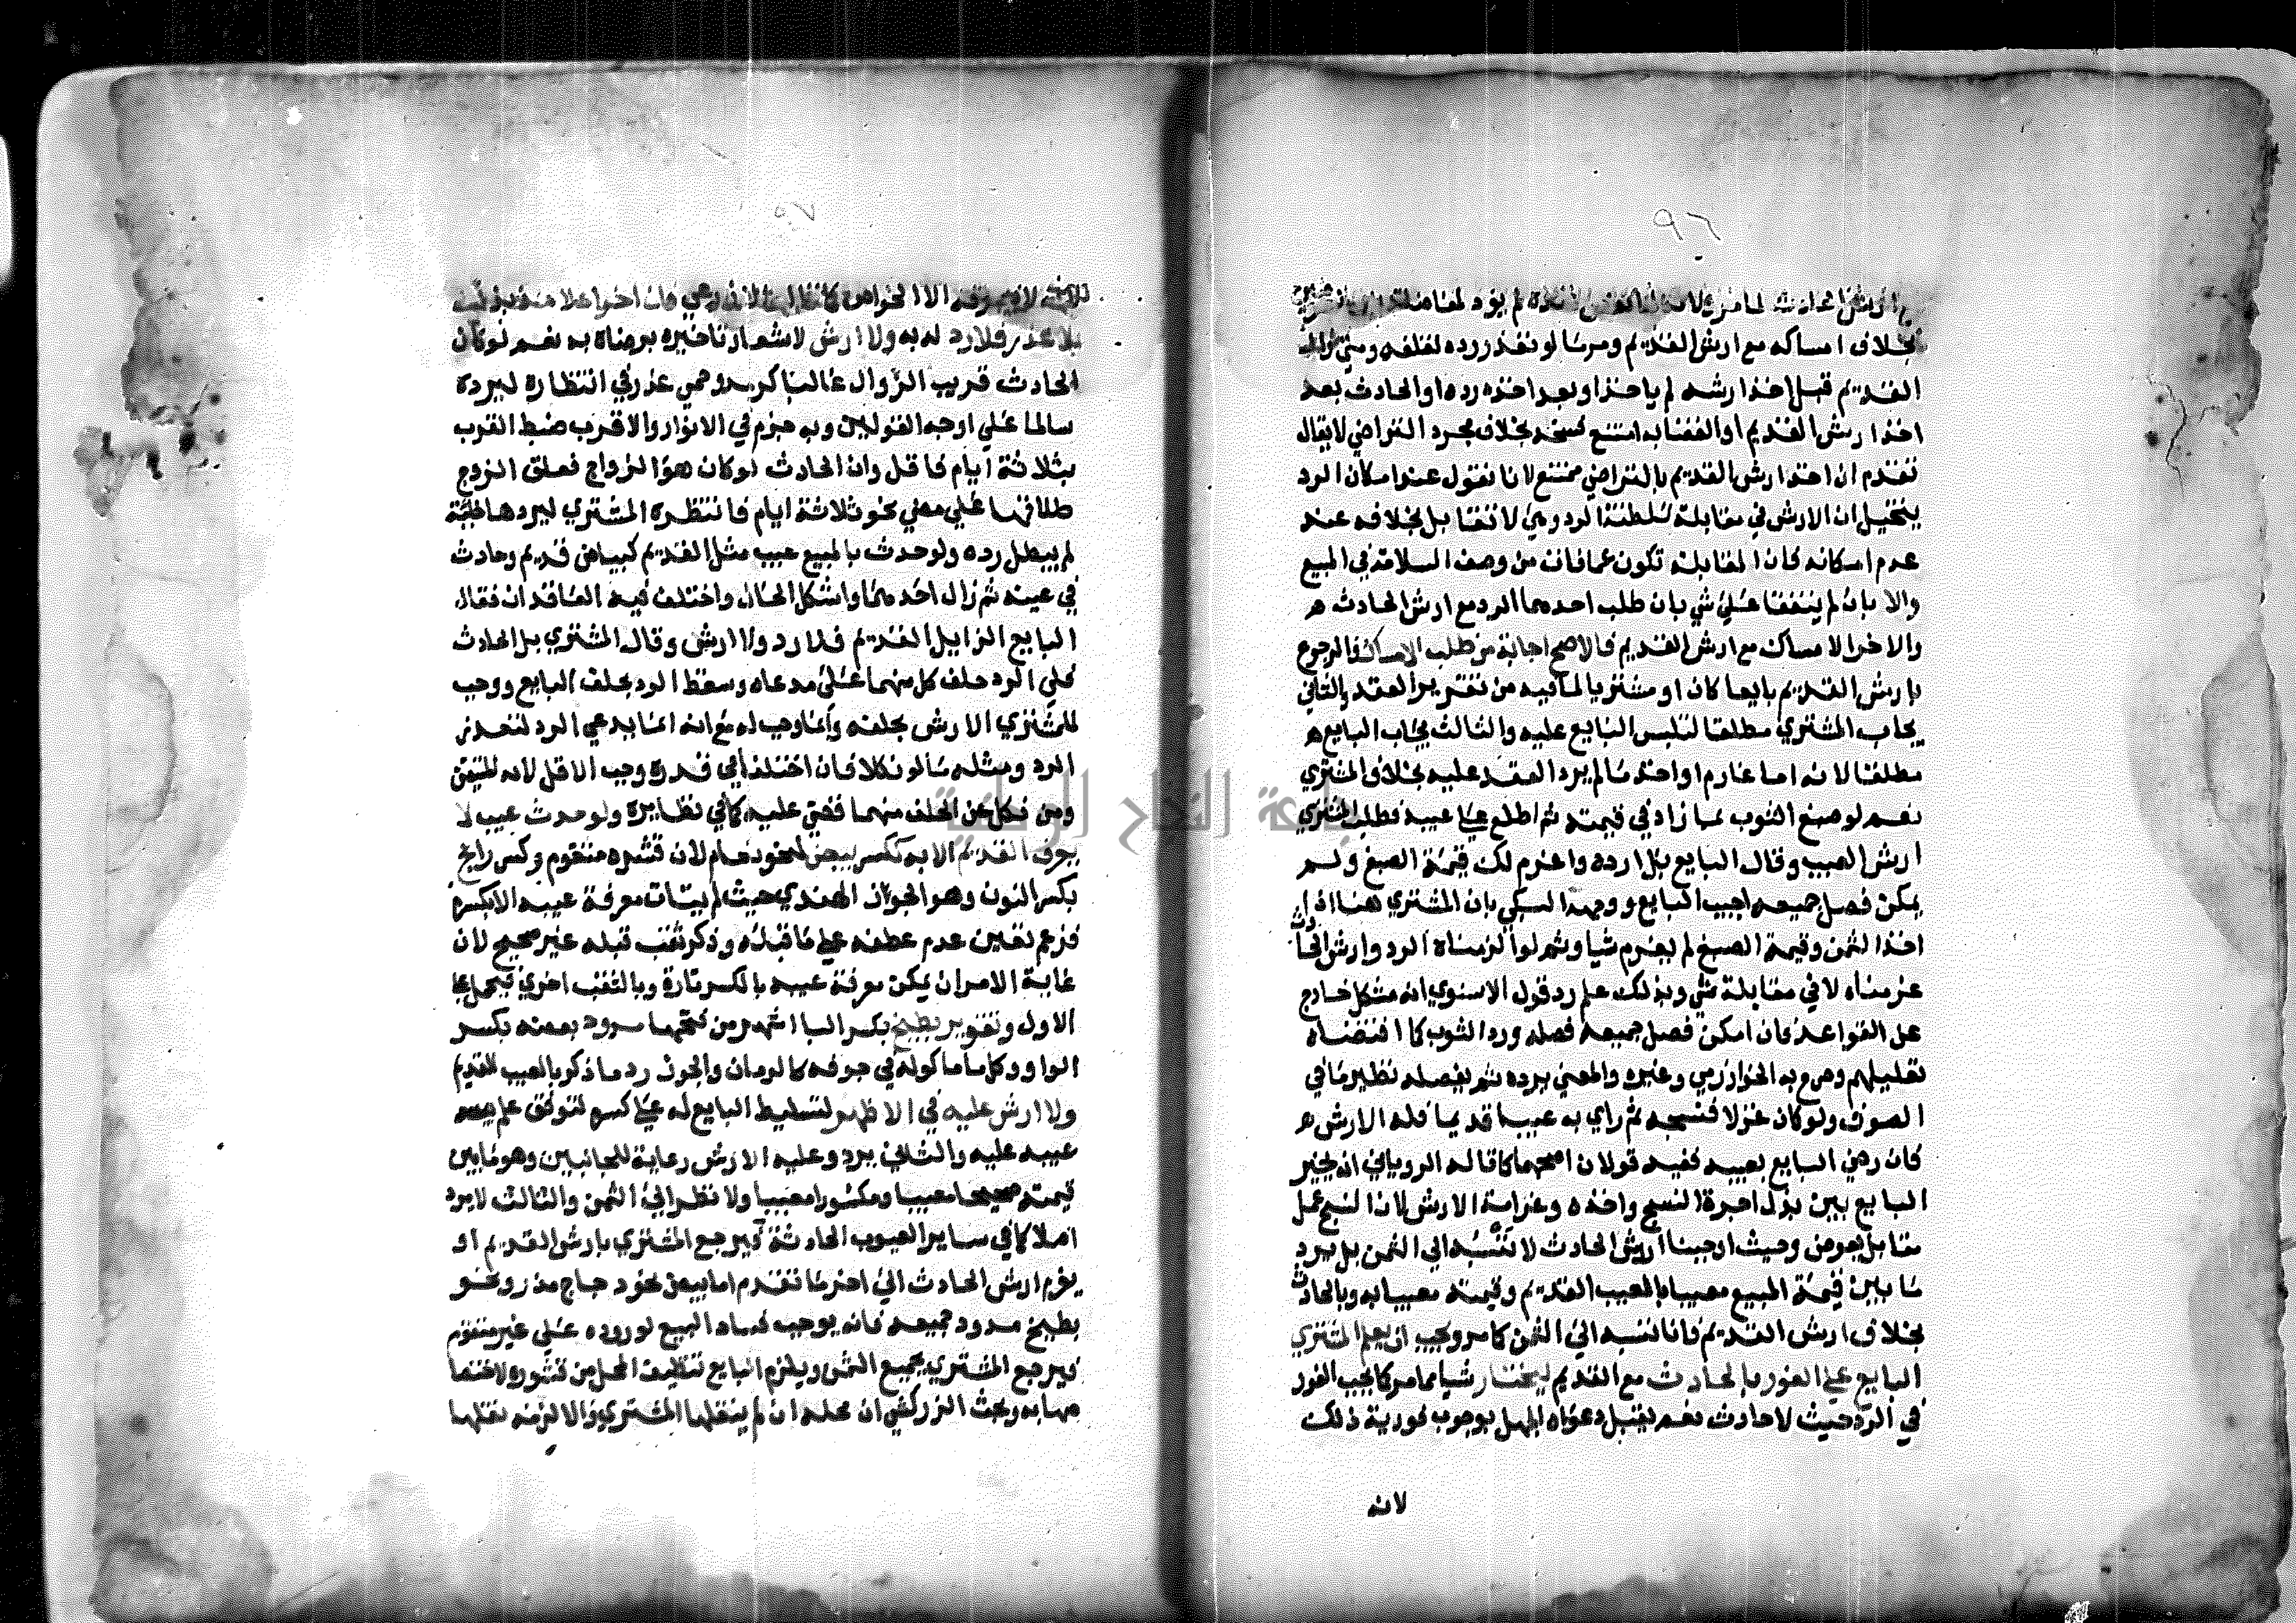 ٩٦
الارش الحادث لما مر لانه لم يود لمفاضلة
بخلاف امساكه مع ارش القديم ومر ما لو تعذر رده لتلفه ومتي زال
القديم قبل اخذ ارشه لم ياخذ او بعد اخذه رده او الحادث بعد
اخذ ارش القديم او القضا به امتنع فسخه بخلاف مجرد التراضي لا يقال
تقدم ان اخذ ارش القديم بالتراضي ممتنع لانا نقول عند امكان الرد
يتخيل ان الارش في مقابلة سلطنة الرد وهي لا تقابل بخلافه عند
عدم امكانه فان المقابلة تكون عما فات من وصف السلامة في المبيع
والا بان لم يتفقا علي شي بان طلب احدهما الرد مع ارش الحادث
والاخر الامساك مع ارش القديم فالاصح اجابة من طلب الامساك والرجوع
بارش القديم بايعا كان او مشتريا لما فيه من تقرير العقد والثاني
يجاب المشتري مطلقا لتلبس البايع عليه والثالث يجاب البايع
مطلقا لانه اما غارم او اخذ ما لم يرد العقد عليه بخلاف المشتري
نعم لو صبغ الثوب بما زاد في قيمته ثم اطلع علي عيبه فطلب المشتري
ارش العيب وقال البايع بل ارده واغرم لك قيمة الصبغ ولم
يمكن فصل جميعه اجيب البايع ووجهه السبكي بان المشتري هنا اذا
اخذ الثمن وقيمة الصبغ لم يغرم شيا وثم لو الزمناه الرد وارش الحادث
غرمناه لا في مقابلة شي وبذلك علم رد قول الاسنوي انه مشكل خارج
عن القواعد فان امكن فصل جميعه فصله ورد الثوب كما اقتضاه
تعليلهم وصرح به الخوارزمي وغيره والمعني يرده ثم يفصله نظير ما في
الصوف ولو كان غزلا فنسجه ثم راي به عيبا قديما فله الارش
فان رضي البايع بعيبه ففيه قولان اصحهما كما قاله الروياني انه يخير
البايع بين بذل اجرة النسج واخذه وغرامة الارش لان النسج عمل
مقابل بعوض وحيث اوجبنا ارش الحادث لا ننسبه الي الثمن بل يرد
ما بين قيمة المبيع معيبا بالعيب القديم وقيمته معيبا به وبالحادث
بخلاف ارش القديم فانا ننسبه الي الثمن كما مر ويجب ان يعلم المشتري
البايع علي الفور بالحادث مع القديم ليختار شيا مما مر كما يجب الفور
في الرد حيث لا حادث نعم يقبل دعواه الجهل بوجوب فورية ذلك
لانه
لانه لا يعرفه الا الخواص فان اخر اعلامه بذلك
بلا عذر فلا رد له به ولا ارش لاشعار تاخيره برضاه به نعم لو كان
الحادث قريب الزوال غالبا كرمد وحمي عذر في انتظاره ليرده
سالما علي اوجه القولين وبه جزم في الانوار والاقرب ضبط القرب
بثلاثة ايام فاقل وان الحادث لو كان هو الزواج فعلق الزوج
طلاقها علي مضي نحو ثلاثة ايام فانتظره المشتري ليردها خلية
لم يبطل رده ولو حدث بالمبيع عيب مثل القديم كبياض قديم وحادث
في عينه ثم زال احدهما واشكل الحال واختلف فيه العاقدان فقال
البايع الزايل القديم فلا رد ولا ارش وقال المشتري بل الحادث
فلي الرد حلف كل منهما علي مدعاه وسقط الرد بحلف البايع ووجب
للمشتري الارش بحلفه وانما وجب له مع انه انما يدعي الرد لتعذر
الرد ومثله ما لو نكلا فان اختلفا في قدره وجب الاقل لانه المتيقن
ومن نكل عن الحلف منهما قضي عليه كما في نظايره ولو حدث عيب لا
يعرف القديم الا به ككسر بيض لنحو نعام لان قشره متقوم وكسر رانج
بكسر النون وهو الجوز الهندي حيث لم يتات معرفة عيبه الا بكسره
فزعم تعين عدم عطفه علي ما قبله وذكر ثقب قبله غير صحيح لان
غاية الامر ان يمكن معرفة عيبه بالكسر تارة وبالثقب اخري فيحمل علي
الاول وتقوير بطيخ بكسر البا اشهر من فتحها مدود بعضه بكسر
الواو وكل ما ماكوله في جوفه كالرمان والجوز رد ما ذكر بالعيب القديم
ولا ارش عليه في الاظهر لتسليط البايع له علي كسره لتوقف علم
عيبه عليه والثاني يرد وعليه الارش رعاية للجانبين وهو ما بين
قيمته صحيحا معيبا ومكسورا معيبا ولا نظر الي الثمن والثالث لا يرد
اصلا كما في ساير العيوب الحادثة فيرجع المشتري بارش القديم او
يغرم ارش الحادث الي اخر ما تقدم اما بيض نحو دجاج مذر ونحو
بطيخ مدود جميعه فانه يوجب فساد البيع لوروده علي غير متقوم
فيرجع المشتري بجميع الثمن ويلزم البايع تنظيف المحل من قشوره لاختصا
صها به وبحث الزركشي ان محله ان لم ينقلها المشتري والا لزمه نقلها